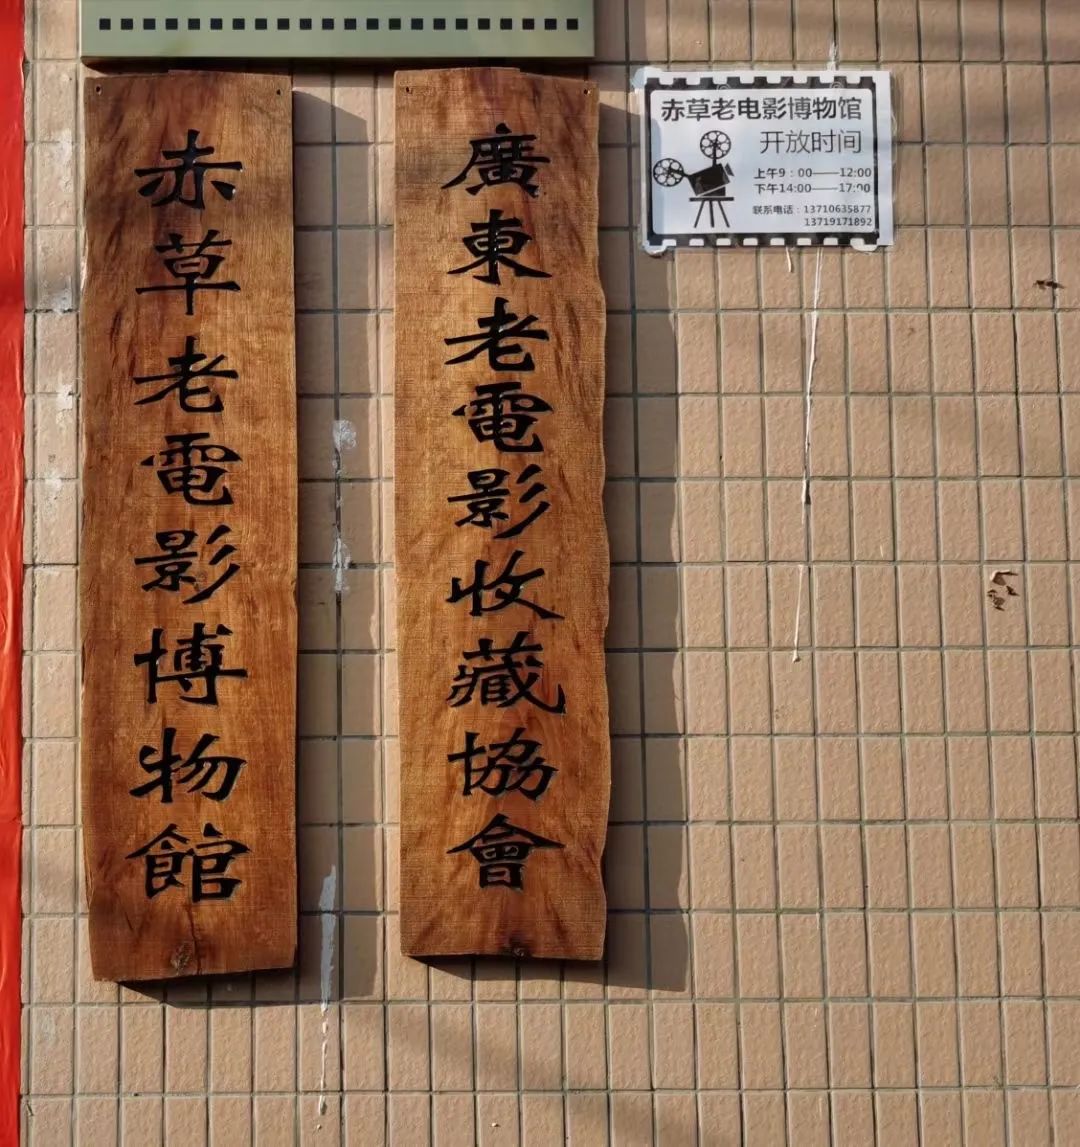 赤草老電影博物館
廣東老電影收藏協會
赤草老电影博物馆
开放时间
上午9：00——12:00
下午14:00——17:00
联系电话：13710635877
13719171892